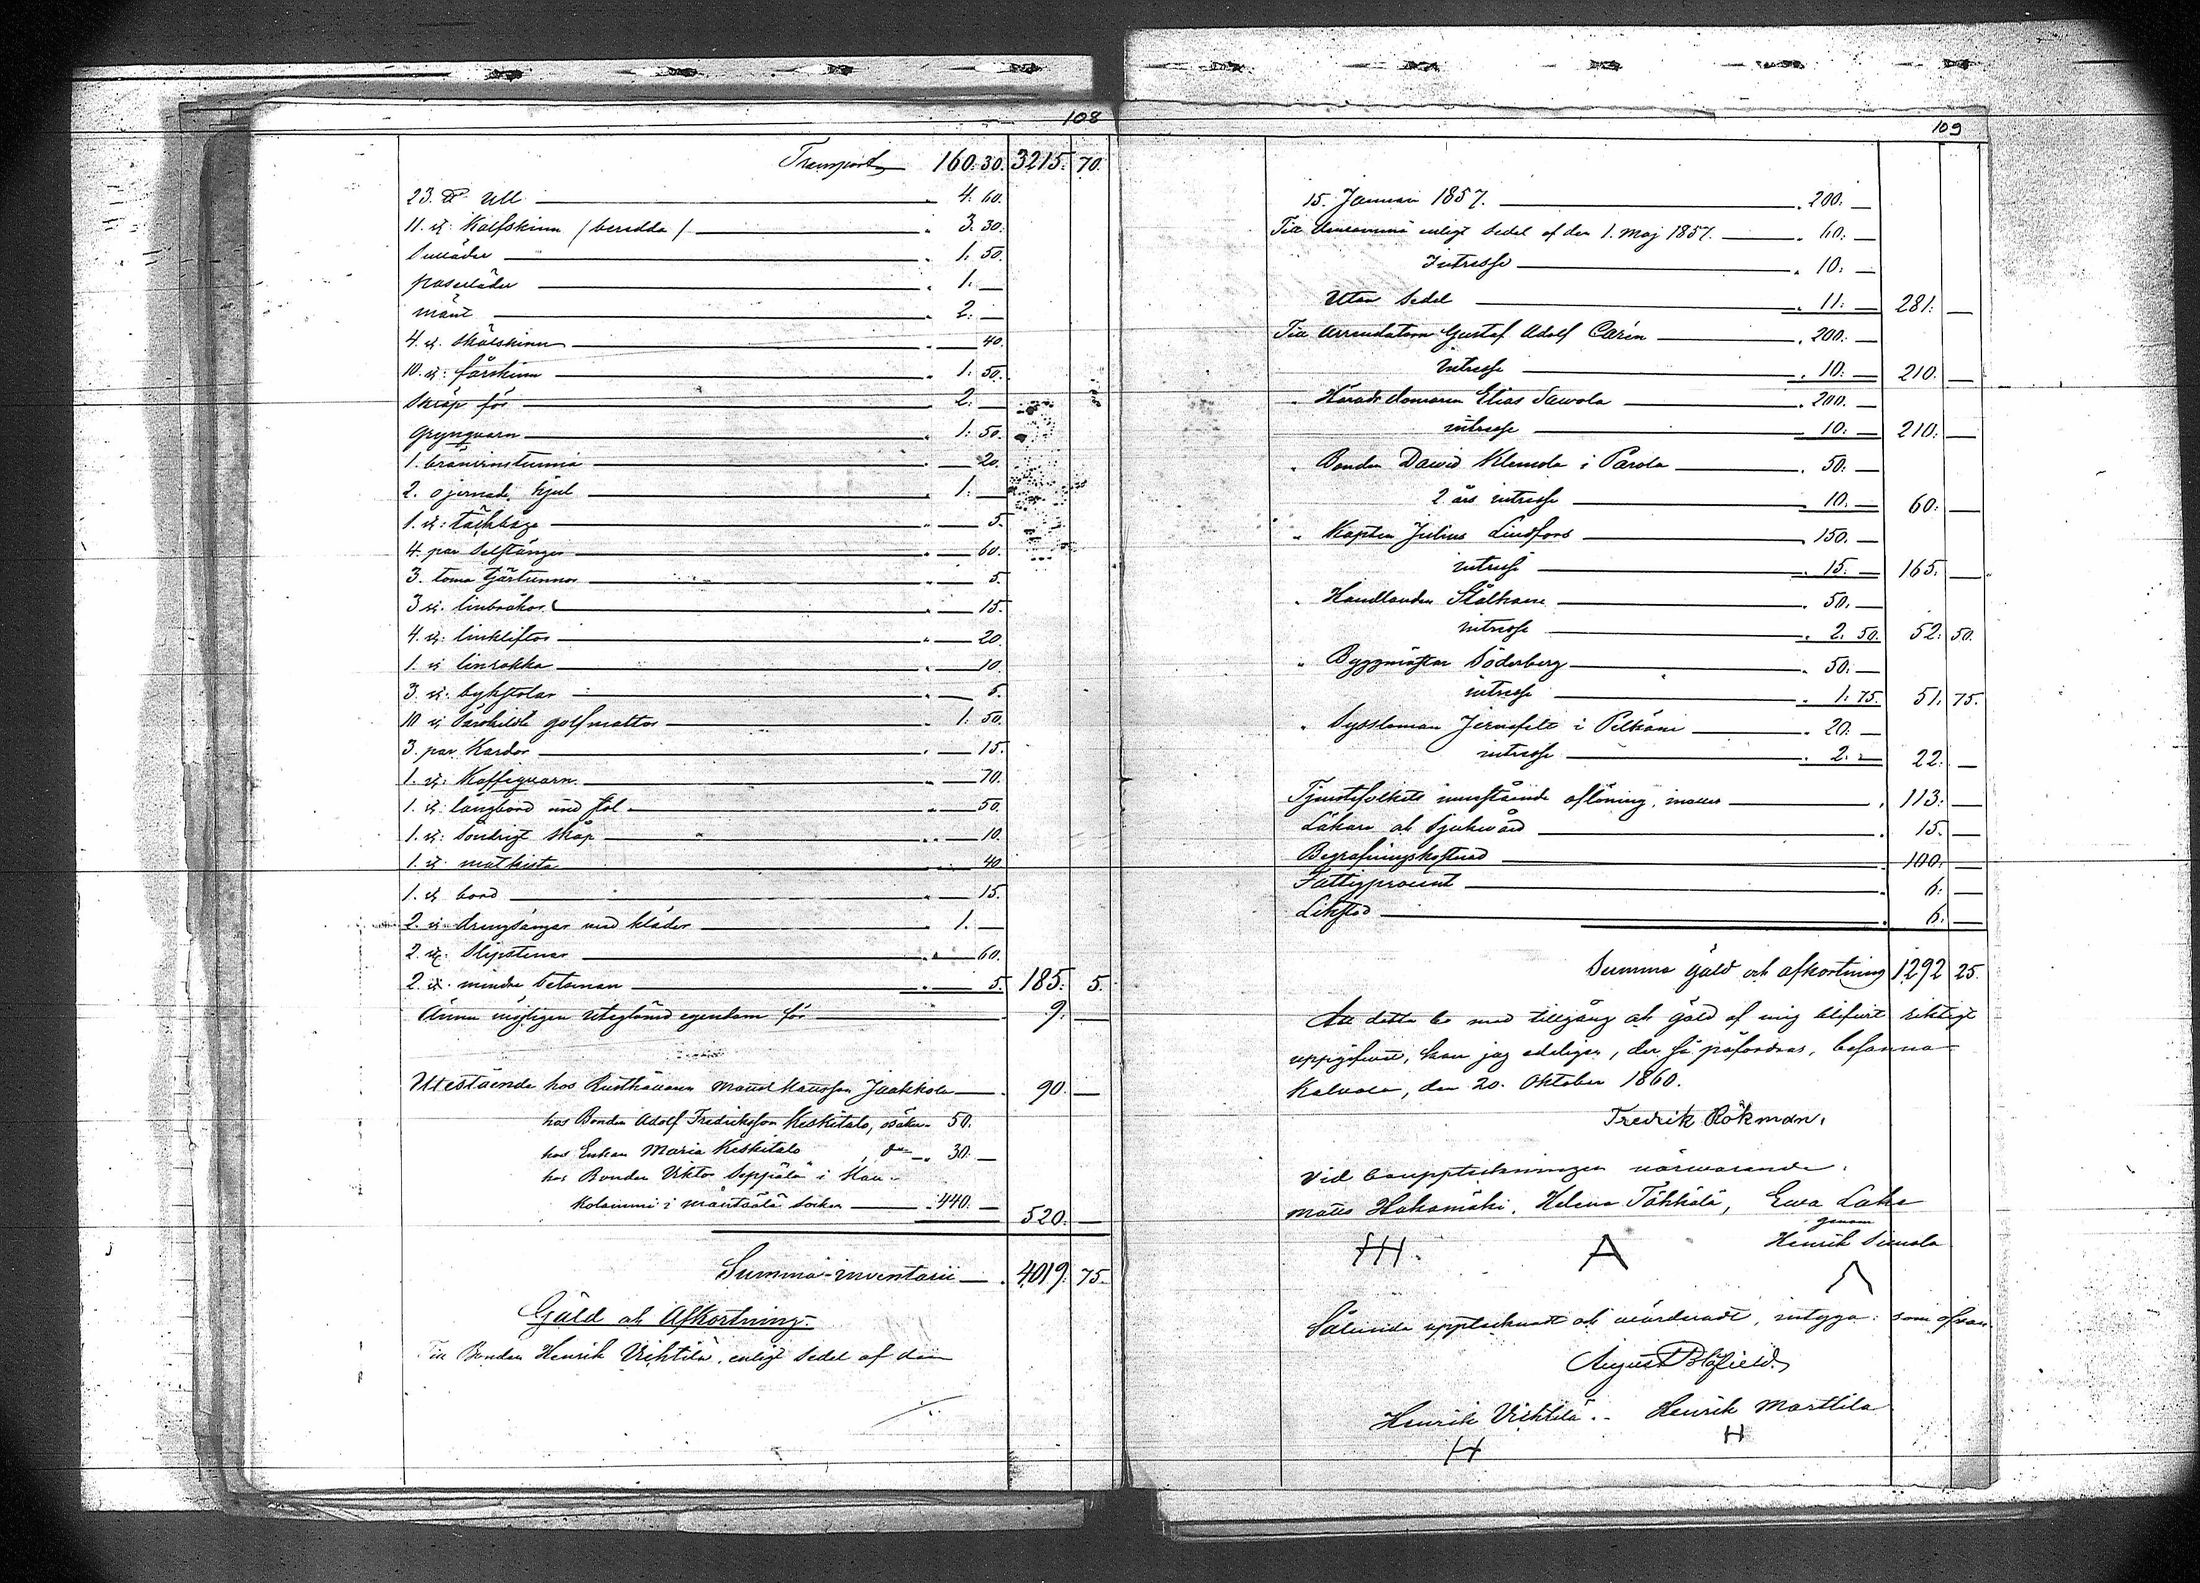 108
Transport 160. 30. 3215. 70.
23. ℔ Ull 4. 60.
11. st: Kalfskinn / beredda / 3. 30.
Sulläder 1. 50.
1. —
2. —
4. st. 40.
10. st: fårskinn 1. 50.
Skräp för 2. —
Grynqvarn 1. 50.
1. bränvinstunna 20.
2. ojernad. hjul 1. —
1. st: 5.
4. par Selstänger 60.
3. toma tjärtunnor 5.
3 st. linbråkor 15.
4. st: linkliftor 20
1. st linrokka 10
3. st. bykstolar 5.
10 st Särskilde golfmattor 1. 50.
3. par Kardor 15.
1. st. Kaffeqvarn 70.
1. st långbord med stol 50.
1. st. Söndrigt skåp 10.
1. st. matkista 40
1. st bord 15.
2. st drengsängar med kläder 1. —
2. st. Slipstenar 60.
2. st. mindre 5. 185. 5.
Ännu möjligen uteglömd egendom för 9. —
Utestående hos Rusthållaren Matts Mattsson Jaakkola 90. —
hos Bonden Adolf Fredriksson Keskitalo, osäker 50.
hos Enkan Maria Keskitalo d:o 30. —
hos Bonden Viktor Seppälä i Kau-
kolammi i Mäntsälä Socken 440. — 520. —
Summa inventarii 4019. 75.
Gäld och Afkortning.
Till Bonden Henrik Vichtilä, enligt Sedel af den
109
15. Januari 1857. 200. —
Till densamma enligt Sedel af den 1. Maj 1857. 60. —
Intresse 10. —
Utan Sedel 11. — 281. —
Till Arrendatorn Gustaf Adolf Carén 200. —
intresse 10. — 210. —
" Häradsdomaren Elias Sawola 200. —
intresse 10. — 210. —
" Bonden David Klemola i Parola 50. —
2 års intresse 10. — 60. —
" Kapten Julius Lindfors 150. —
intresse 15. — 165. —
" Handlanden Stålhane 50. —
intresse 2. 50. 52. 50.
" Byggmästar Söderberg 50. —
intresse 1. 75. 51. 75.
" Syssloman Jernefelt i Pelkäne 20. —
intresse 2. — 22. —
Tjenstefolkets innestående aflöning, inalles 113. —
Läkare och Sjukvård 15. —
Begrafningskostnad 100. —
Fattigprocent 6. —
Likstod 6. —
Summa gäld och afkortning 1292 25.
Att detta bo med tillgång och gäld af mig blifvit riktigt
uppgifvet, kan jag edeligen, der så påfordras, besanna
Kalvola, den 20. Oktober 1860.
Fredrik Rökman.
Vid bouppteckningen närvarande.
Matts Hakamäki, Helena Tökkälä, Ewa Laka
genom
Henrik Simola
H A
Sålunda upptecknadt och värderadt, intyga: som ofvan
August Blåfield.
Henrik Vichtilä. Henrik Marttila
H H